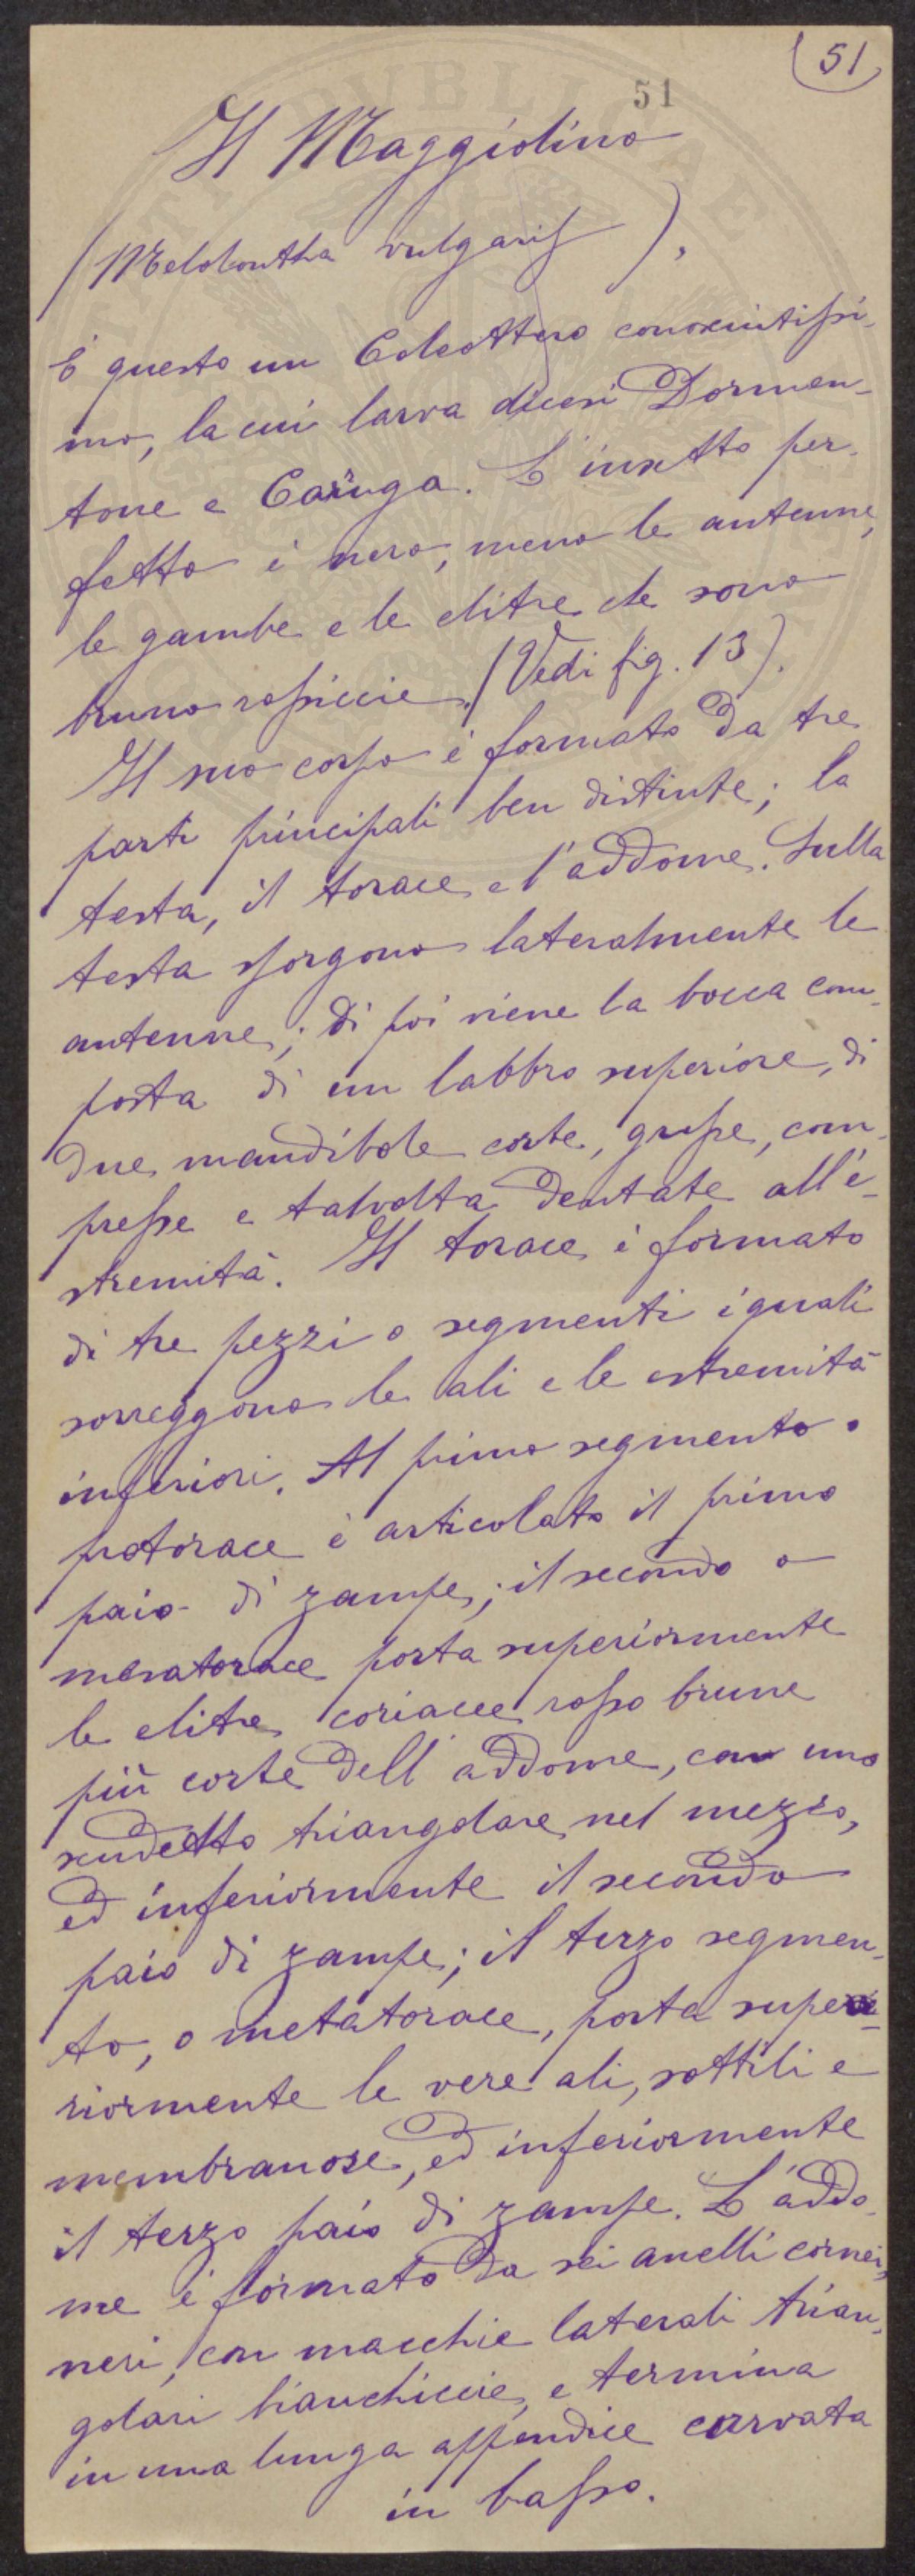 51
51
Il Maggiolino
(Melolontha vulgaris).
È questo un Coleottero conosciutissi-
mo, la cui larva dicesi Dormen-
tone e Carüga. L'insetto per-
fetto è nero, meno le antenne,
le gambe e le elitre che sono
bruno rossiccie. (Vedi fig. 13).
Il suo corpo è formato da tre
parti principali ben distinte; la
testa, il torace e l'addome. Sulla
testa sporgono lateralmente le
antenne; di poi viene la bocca com-
posta di un labbro superiore, di
due mandibole corte, grosse, com-
presse e talvolta dentate all'e-
stremità. Il torace è formato
di tre pezzi o segmenti i quali
sorreggono le ali e le estremità
inferiori. Al primo segmento o
protorace è articolato il primo
paio di zampe; il secondo o
mesatorace porta superiormente
le elitre coriacee rosso brune
più corte dell'addome, con uno
scudetto triangolare nel mezzo,
ed inferiormente il secondo
paio di zampe; il terzo segmen-
to, o metatorace, porta supe-
riormente le vere ali, sottili e
membranose, ed inferiormente
il terzo paio di zampe. L'addo-
me è formato da sei anelli cornei,
neri, con macchie laterali trian-
golari bianchiccie, e termina
in una lunga appendice curvata
in basso.